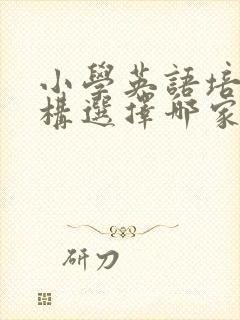 小學英語培
構選擇哪家
研刀